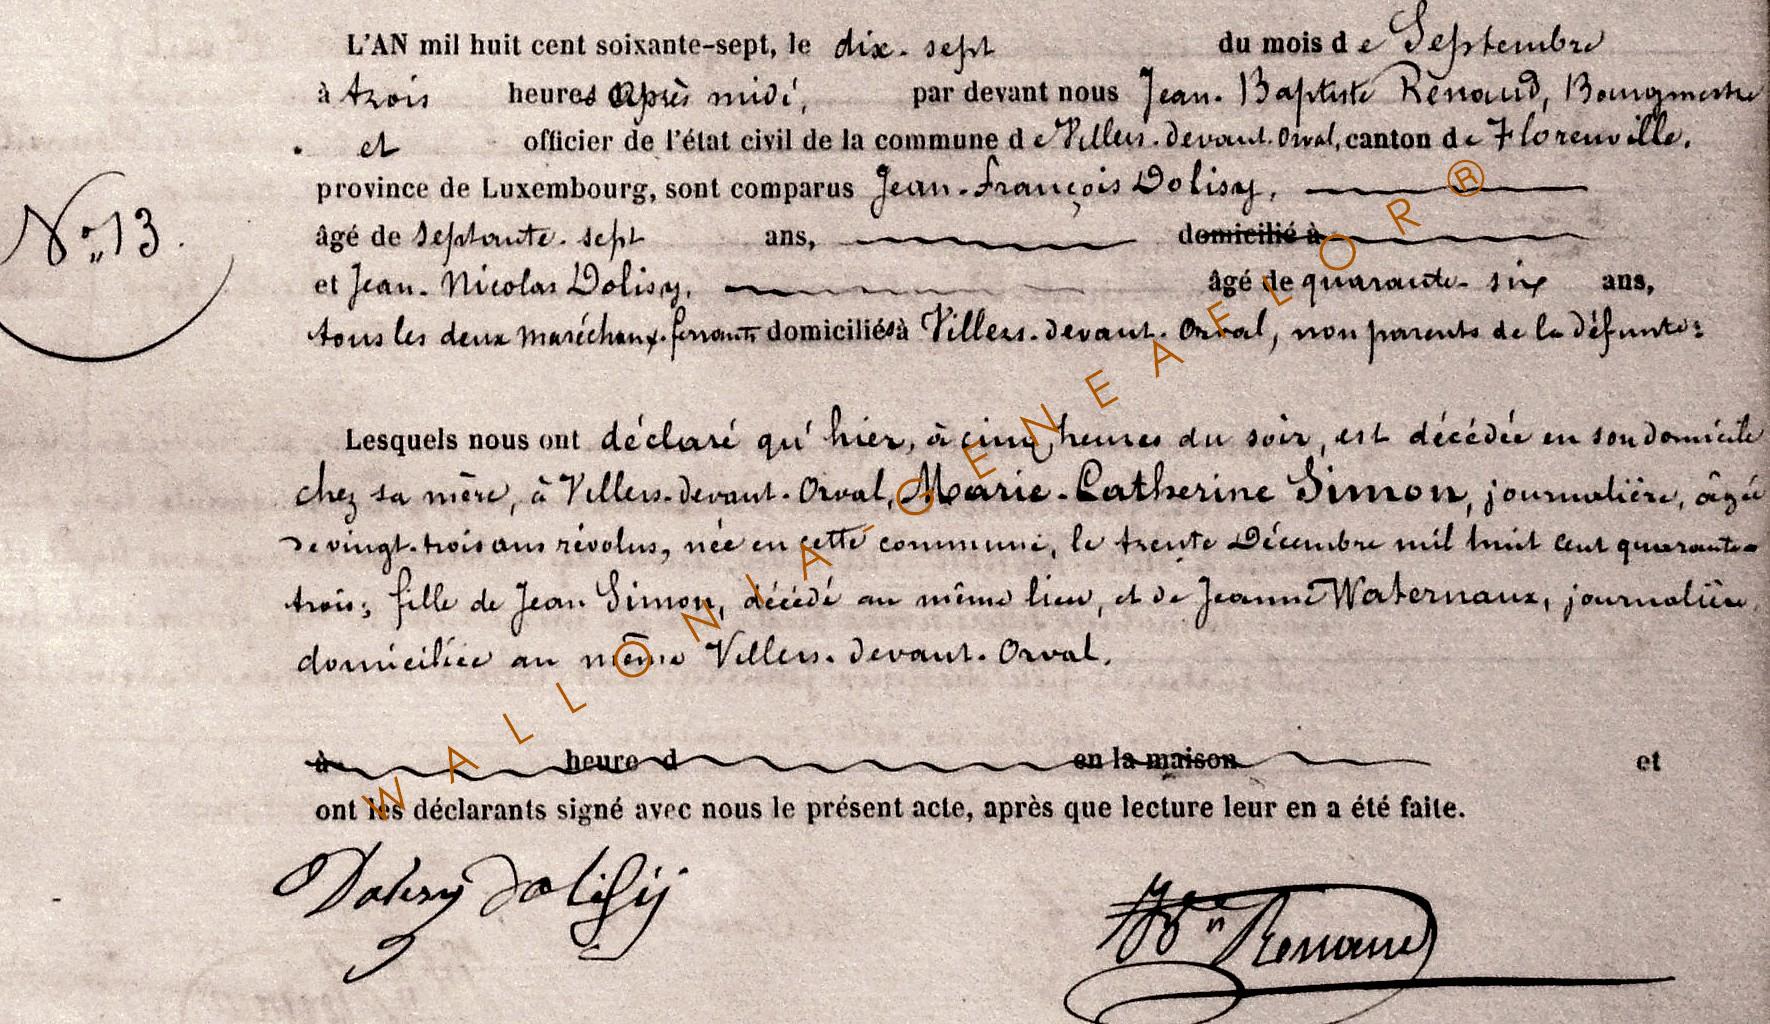 L'AN mil huit cent soixante-sept, le dix-sept du mois de Septembre
à trois heures après midi, par devant nous Jean-Baptiste Renaud, Bourgmestre
et officier de l'état civil de la commune de Villers-devant-Orval, canton de Florenville,
province de Luxembourg, sont comparus Jean-François Dolisy,
N° 13.
âgé de septante-sept ans, domicilié à
et Jean-Nicolas Dolisy, âgé de quarante-six ans,
tous les deux maréchaux-ferrants domiciliés à Villers-devant-Orval, non parents de la défunte:
Lesquels nous ont déclaré qu'hier, à cinq heures du soir, est décédée en son domicile
chez sa mère, à Villers-devant-Orval, Marie-Catherine Simon, journalière, âgée
de vingt-trois ans révolus, née en cette commune, le trente Décembre mil huit cent quarante-
trois; fille de Jean Simon, décédé au même lieu, et de Jeanne Waternaux, journalière,
domiciliée au même Villers-devant-Orval.
à heure d en la maison et
ont les déclarants signé avec nous le présent acte, après que lecture leur en a été faite.
Dolisy Dolisy
Renaud
WALLONIA-GENEAFLOR®